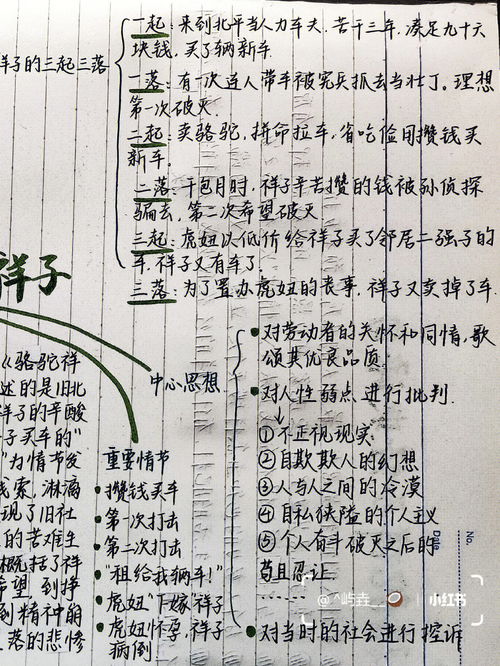 一起:来到北平当人力车夫,苦干三年,凑足九十六
块钱,买了辆新车
祥子的三起三落
一落:有一次连人带车被宪兵抓去当壮丁。理想
第一次破灭.
二起:卖骆驼,拼命拉车,省吃俭用攒钱买
新车。
二落:干包月时,祥子辛苦攒的钱被孙侦探
骗去,第二次希望破灭
三起:虎妞以低价给祥子买了邻居二强子的
车,祥子又有车了.
三落:为了置办虎妞的丧事,祥子又卖掉了车.
祥子
中心思想
对劳动者的关怀和同情,歌
颂其优良品质.
对人性弱点进行批判.
①不正视现实
②自欺欺人的幻想
③人与人之间的冷漠
④自私狭隘的个人主义
⑤个人奋斗破灭之后的
苟且忍让.
对当时的社会进行控诉
重要情节
攒钱买车
第一次打击
第二次打击
"租给我辆车!"
虎妞"下嫁"祥子
虎妞怀孕,祥子
病倒
《骆驼祥
述的是旧北
祥子的辛酸
子买车的"
"为情节发
线索,淋漓
现了旧社
的苦难生
概括了祥
希望 到挣
到精神崩
落的悲惨
No.
Date
@^屿垚__
小红书